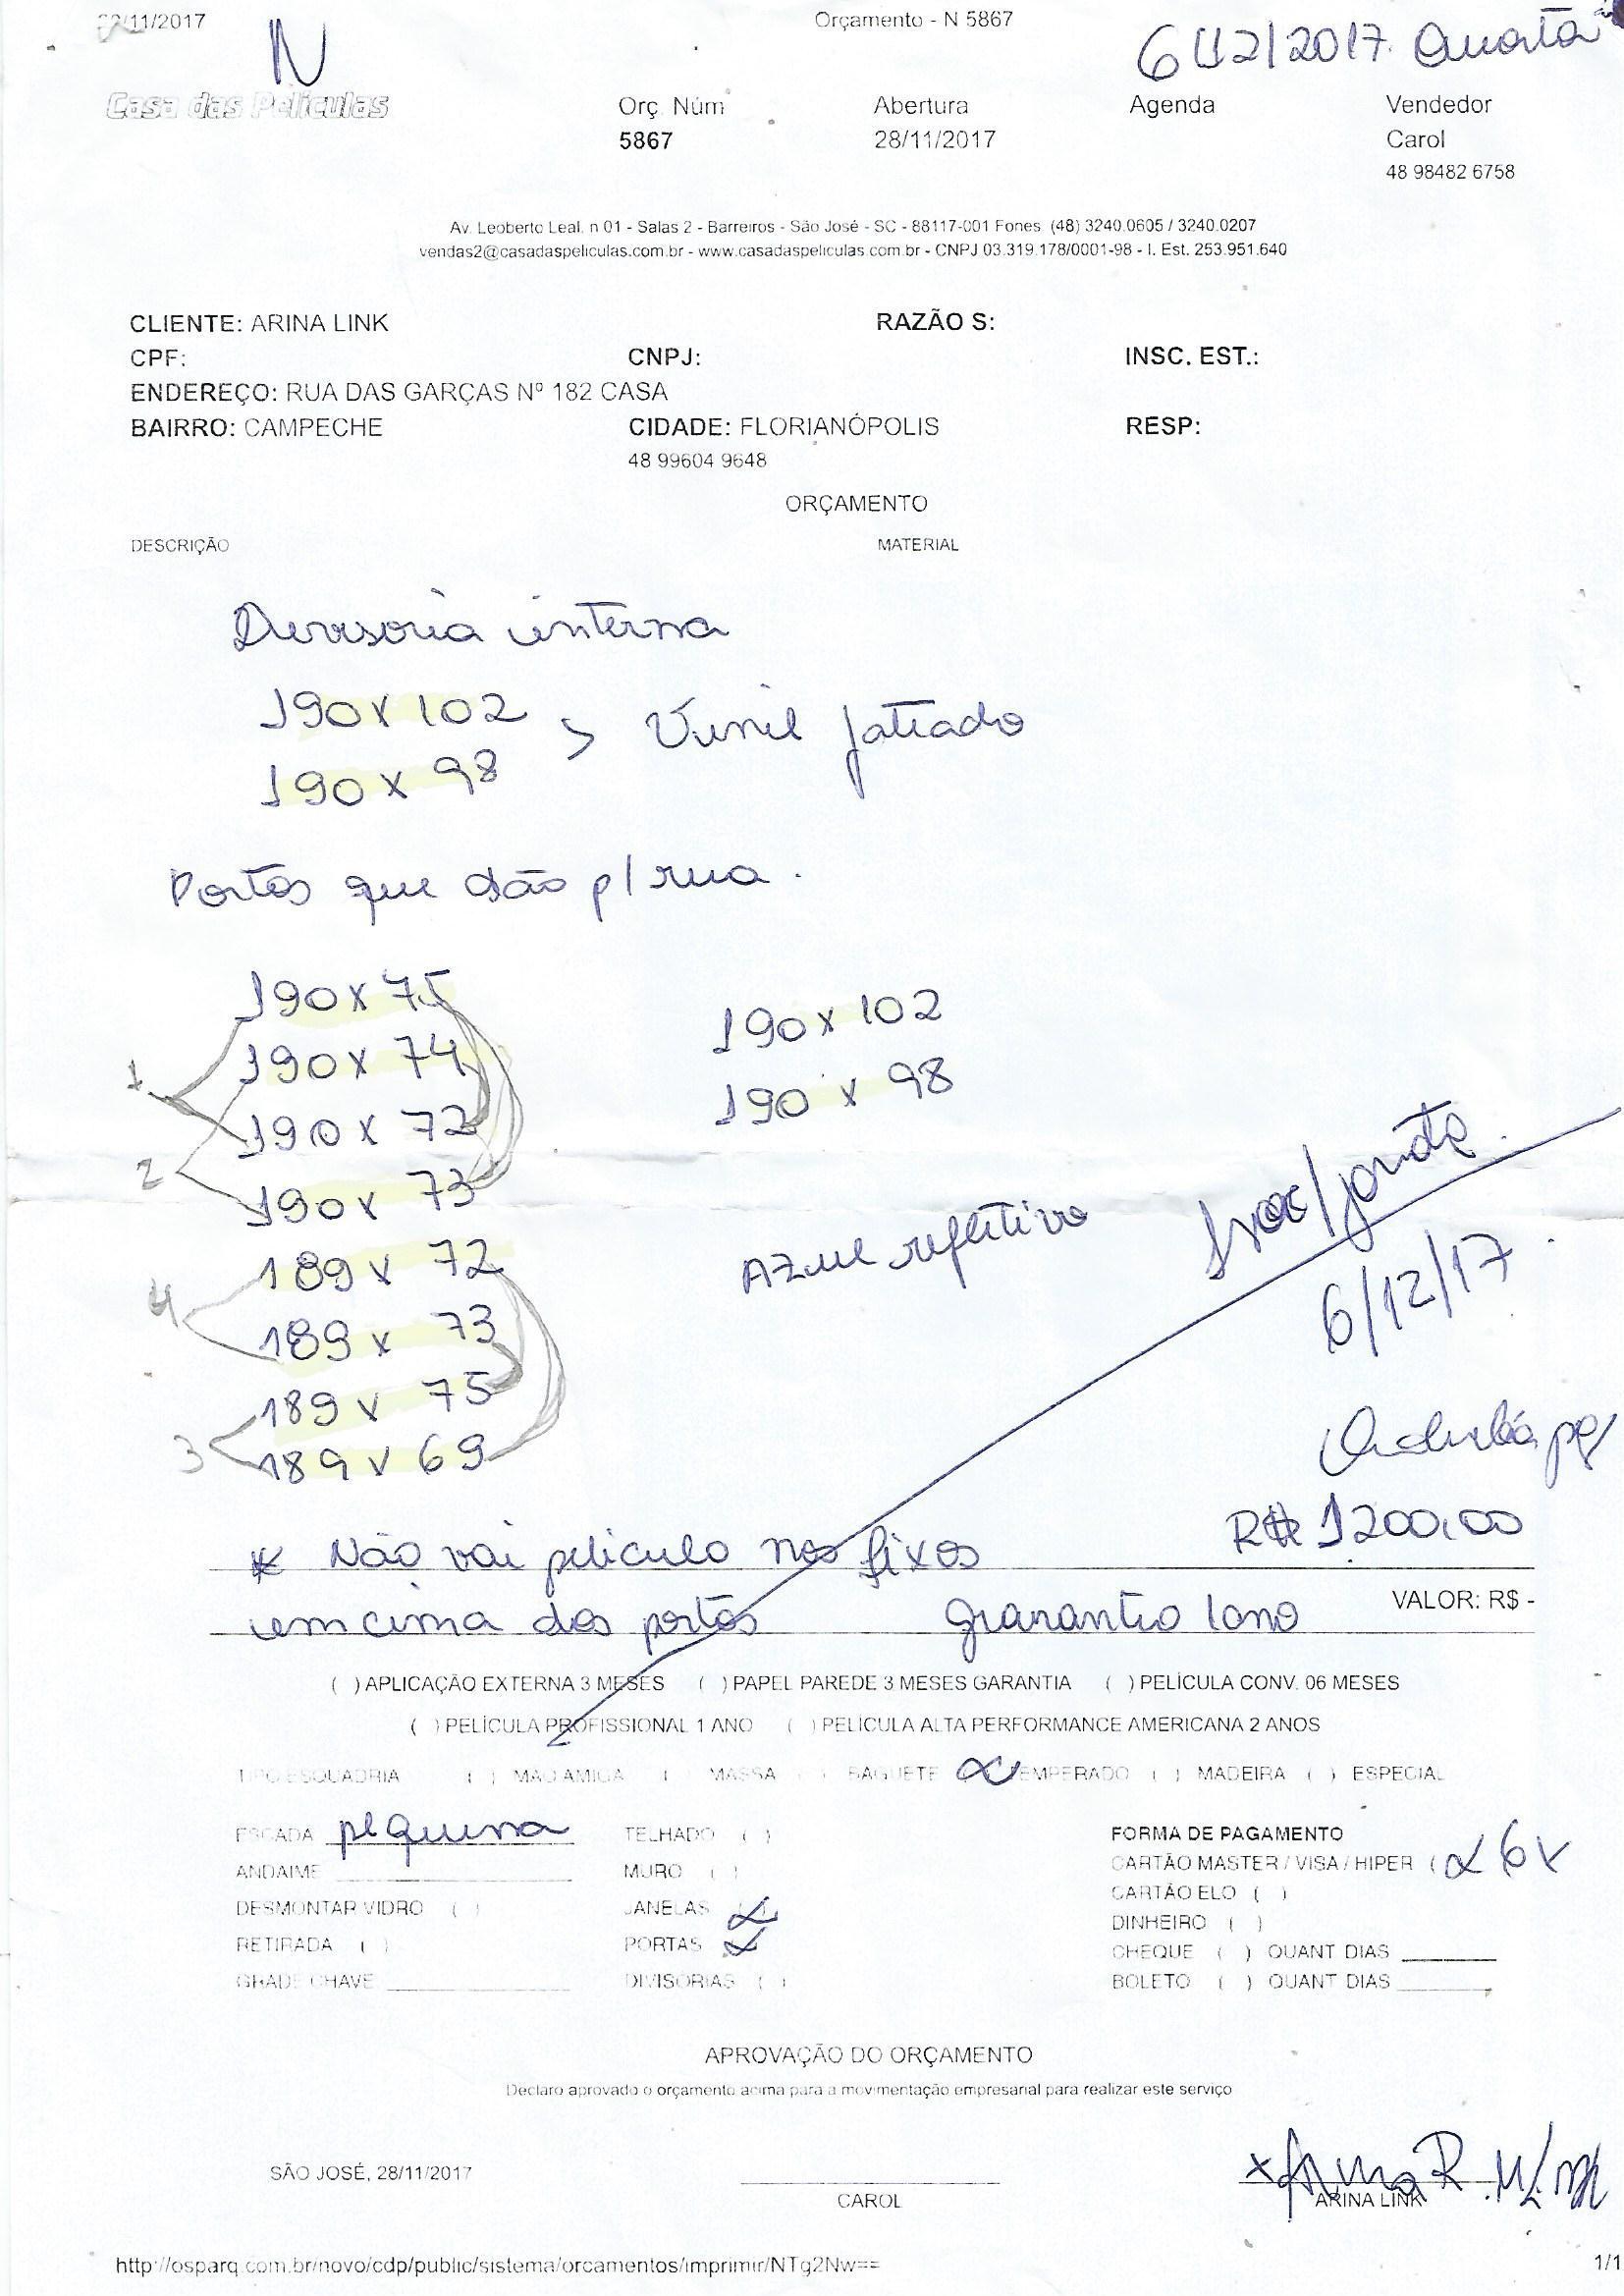 /11/2017
Orçamento - N 5867
6/12/2017 Quarta
N
Casa das Películas
Orç. Núm
Abertura
Agenda
Vendedor
5867
28/11/2017
Carol
48 98482 6758
Av. Leoberto Leal, n 01 - Salas 2 - Barreiros - São José - SC - 88117-001 Fones (48) 3240.0605 / 3240.0207
vendas2@casadaspeliculas.com.br - www.casadaspeliculas.com.br - CNPJ 03.319.178/0001-98 - I. Est. 253.951.640
CLIENTE: ARINA LINK
RAZÃO S:
CPF:
CNPJ:
INSC. EST.:
ENDEREÇO: RUA DAS GARÇAS Nº 182 CASA
BAIRRO: CAMPECHE
CIDADE: FLORIANÓPOLIS
RESP:
48 99604 9648
ORÇAMENTO
DESCRIÇÃO
MATERIAL
Divisoria interna
190 x 102
190 x 98
> Vinil jateado
Portas que dão p/ rua.
190 x 75
190 x 74
190 x 72
190 x 73
189 x 72
189 x 73
189 x 75
189 x 69
1
2
4
3
190 x 102
190 x 98
Azul refletivo
6/12/17
R$ 1200,00
* Não vai pelicula nos fixos
em cima das portas
garantia 1 ano
VALOR: R$ -
( ) APLICAÇÃO EXTERNA 3 MESES ( ) PAPEL PAREDE 3 MESES GARANTIA ( ) PELÍCULA CONV. 06 MESES
( ) PELÍCULA PROFISSIONAL 1 ANO ( ) PELÍCULA ALTA PERFORMANCE AMERICANA 2 ANOS
TIPO ESQUADRIA ( ) MAO AMIGA ( ) MASSA ( ) BAGUETE (x) TEMPERADO ( ) MADEIRA ( ) ESPECIAL
ESCADA pequena
TELHADO ( )
FORMA DE PAGAMENTO
ANDAIME
MURO ( )
CARTÃO MASTER / VISA / HIPER (x 6x
DESMONTAR VIDRO ( )
JANELAS x
CARTÃO ELO ( )
DINHEIRO ( )
RETIRADA ( )
PORTAS x
CHEQUE ( ) QUANT DIAS
GRADE CHAVE
DIVISORIAS ( )
BOLETO ( ) QUANT DIAS
APROVAÇÃO DO ORÇAMENTO
Declaro aprovado o orçamento acima para a movimentação empresarial para realizar este serviço
SÃO JOSÉ, 28/11/2017
CAROL
ARINA LINK
http://osparq.com.br/novo/cdp/public/sistema/orcamentos/imprimir/NTg2Nw==
1/1